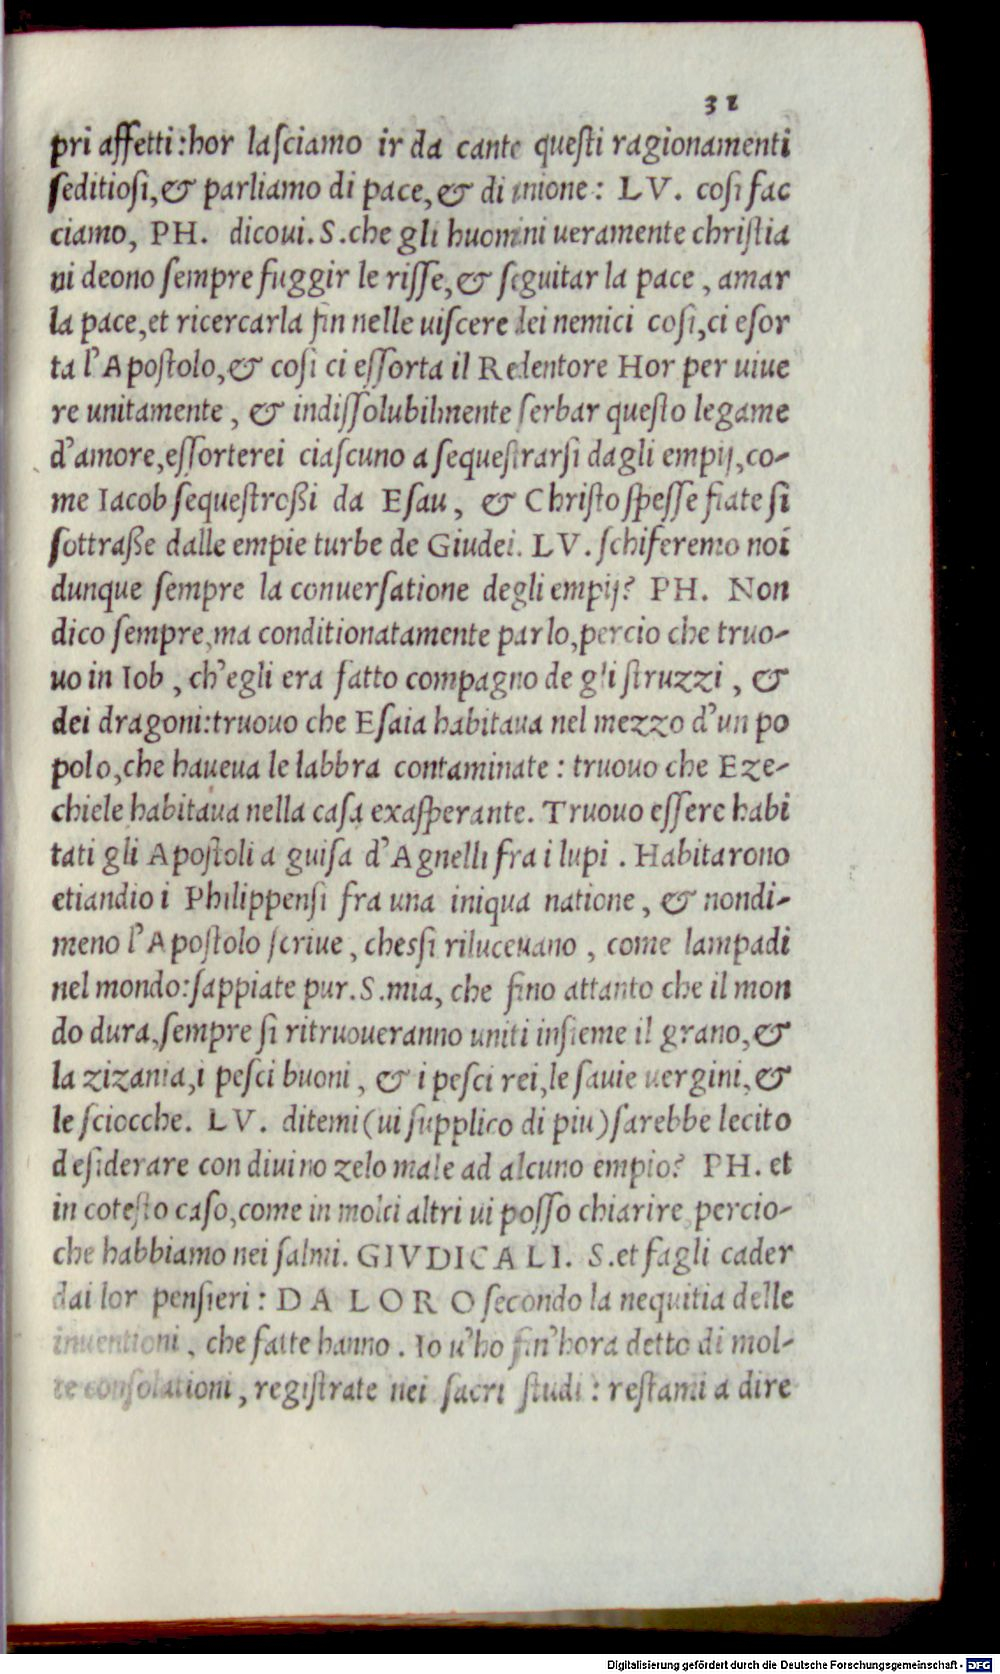 31
pri affetti:hor lasciamo ir da cante questi ragionamenti
seditiosi,& parliamo di pace,& di unione: LV. cosi fac
ciamo, PH. dicoui.S.che gli huomini ueramente christia
ni deono sempre fuggir le risse,& seguitar la pace, amar
la pace,et ricercarla fin nelle uiscere dei nemici cosi,ci esor
ta l'Apostolo,& cosi ci essorta il Redentore Hor per uiue
re unitamente, & indissolubilmente serbar questo legame
d'amore,essorterei ciascuno a sequestrarsi dagli empij,co-
me Iacob sequestroßi da Esau, & Christo spesse fiate si
sottraße dalle empie turbe de Giudei. LV. schiferemo noi
dunque sempre la conuersatione degli empij? PH. Non
dico sempre,ma conditionatamente parlo,percio che truo-
uo in Iob, ch'egli era fatto compagno de gli struzzi, &
dei dragoni:truouo che Esaia habitaua nel mezzo d'un po
polo,che haueua le labbra contaminate: truouo che Eze-
chiele habitaua nella casa exasperante. Truouo essere habi
tati gli Apostoli a guisa d'Agnelli fra i lupi. Habitarono
etiandio i Philippensi fra una iniqua natione, & nondi-
meno l'Apostolo scriue, chessi riluceuano, come lampadi
nel mondo:sappiate pur.S.mia, che fino attanto che il mon
do dura,sempre si ritruoueranno uniti insieme il grano,&
la zizania,i pesci buoni, & i pesci rei,le sauie uergini,&
le sciocche. LV. ditemi(ui supplico di piu)sarebbe lecito
desiderare con diuino zelo male ad alcuno empio? PH. et
in cotesto caso,come in molti altri ui posso chiarire,percio-
che habbiamo nei salmi. GIVDICALI. S.et fagli cader
dai lor pensieri: DA LORO secondo la nequitia delle
inuentioni, che fatte hanno. Io u'ho fin'hora detto di mol-
te consolationi, registrate nei sacri studi: restami a dire
Digitalisierung gefördert durch die Deutsche Forschungsgemeinschaft - DFG